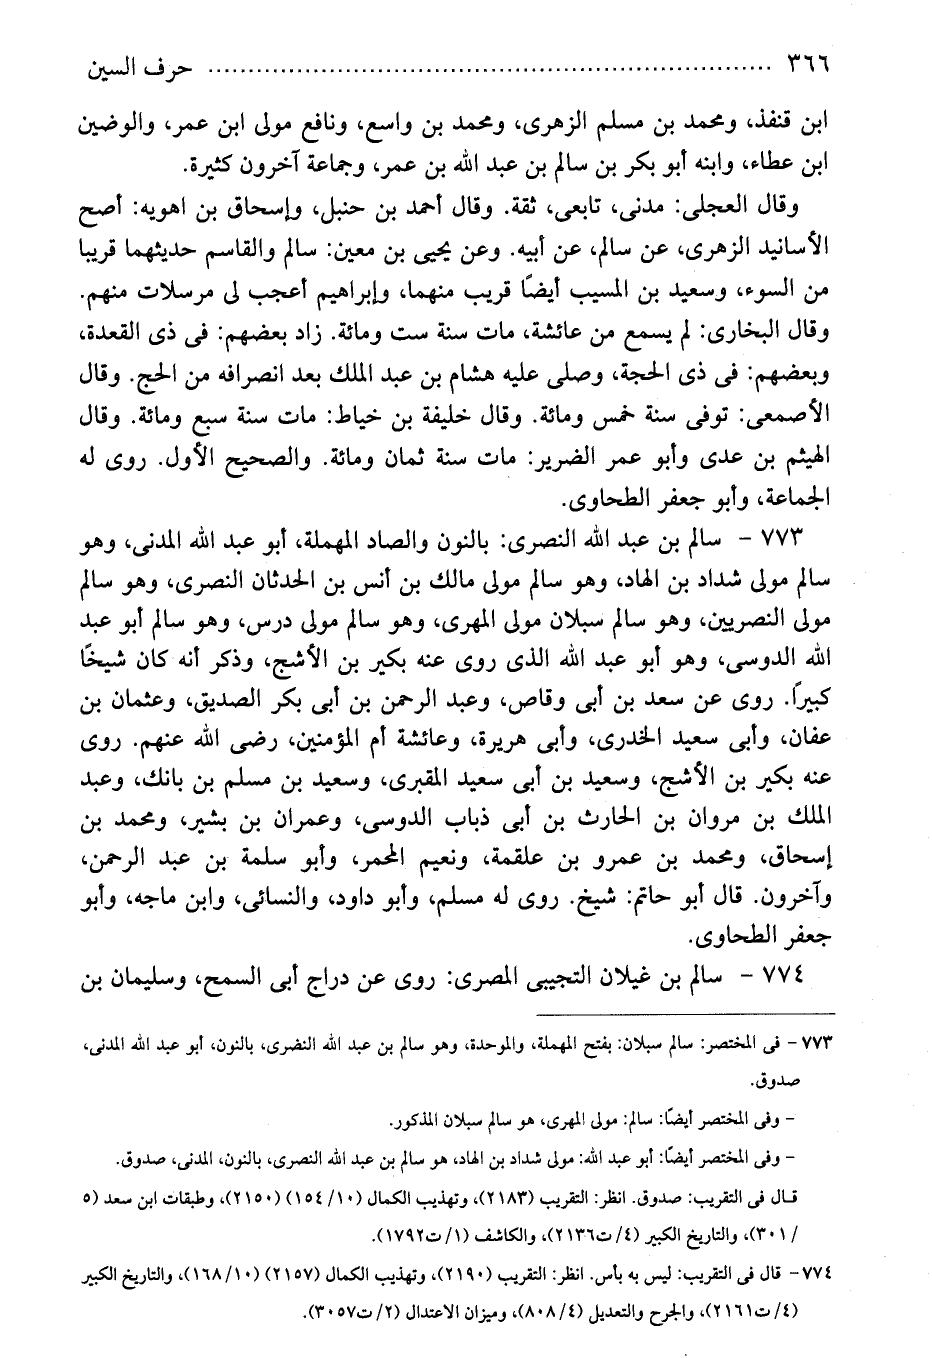 ٣٦٦ ........................................................................ حرف السين
ابن قنفذ، ومحمد بن مسلم الزهرى، ومحمد بن واسع، ونافع مولى ابن عمر، والوضين
ابن عطاء، وابنه أبو بكر بن سالم بن عبد الله بن عمر، وجماعة آخرون كثيرة.
وقال العجلى: مدنى، تابعى، ثقة. وقال أحمد بن حنبل، وإسحاق بن اهويه: أصح
الأسانيد الزهرى، عن سالم، عن أبيه. وعن يحيى بن معين: سالم والقاسم حديثهما قريبا
من السوء، وسعيد بن المسيب أيضًا قريب منهما، وإبراهيم أعجب لى مرسلات منهم.
وقال البخارى: لم يسمع من عائشة، مات سنة ست ومائة. زاد بعضهم: فى ذى القعدة،
وبعضهم: فى ذى الحجة، وصلى عليه هشام بن عبد الملك بعد انصرافه من الحج. وقال
الأصمعى: توفى سنة خمس ومائة. وقال خليفة بن خياط: مات سنة سبع ومائة. وقال
الهيثم بن عدى وأبو عمر الضرير: مات سنة ثمان ومائة. والصحيح الأول. روى له
الجماعة، وأبو جعفر الطحاوى.
٧٧٣ - سالم بن عبد الله النصرى: بالنون والصاد المهملة، أبو عبد الله المدنى، وهو
سالم مولى شداد بن الهاد، وهو سالم مولى مالك بن أنس بن الحدثان النصرى، وهو سالم
مولى النصريين، وهو سالم سبلان مولى المهرى، وهو سالم مولى درس، وهو سالم أبو عبد
الله الدوسى، وهو أبو عبد الله الذى روى عنه بكير بن الأشج، وذكر أنه كان شيخًا
كبيرًا. روى عن سعد بن أبى وقاص، وعبد الرحمن بن أبى بكر الصديق، وعثمان بن
عفان، وأبى سعيد الخدرى، وأبى هريرة، وعائشة أم المؤمنين، رضى الله عنهم. روى
عنه بكير بن الأشج، وسعيد بن أبى سعيد المقبرى، وسعيد بن مسلم بن بانك، وعبد
الملك بن مروان بن الحارث بن أبى ذباب الدوسى، وعمران بن بشير، ومحمد بن
إسحاق، ومحمد بن عمرو بن علقمة، ونعيم المجمر، وأبو سلمة بن عبد الرحمن،
وآخرون. قال أبو حاتم: شيخ. روى له مسلم، وأبو داود، والنسائى، وابن ماجه، وأبو
جعفر الطحاوى.
٧٧٤ - سالم بن غيلان التجيبى المصرى: روى عن دراج أبى السمح، وسليمان بن
٧٧٣- فى المختصر: سالم سبلان: بفتح المهملة، والموحدة، وهو سالم بن عبد الله النضرى، بالنون، أبو عبد الله المدنى،
صدوق.
- وفى المختصر أيضًا: سالم: مولى المهرى، هو سالم سبلان المذكور.
- وفى المختصر أيضًا: أبو عبد الله: مولى شداد بن الهاد، هو سالم بن عبد الله النصرى، بالنون، المدنى، صدوق.
قال فى التقريب: صدوق. انظر: التقريب (٢١٨٣)، وتهذيب الكمال (١٠/ ١٥٤) (٢١٥٠)، وطبقات ابن سعد (٥
/٣٠١)، والتاريخ الكبير (٤/ ت٢١٣٦)، والكاشف (١/ ت١٧٩٢).
٧٧٤- قال فى التقريب: ليس به بأس. انظر: التقريب (٢١٩٠)، وتهذيب الكمال (٢١٥٧) (١٠/١٦٨)، والتاريخ الكبير
(٤/ ت٢١٦١)، والجرح والتعديل (٤/ ٨٠٨)، وميزان الاعتدال (٢/ ت٣٠٥٧).